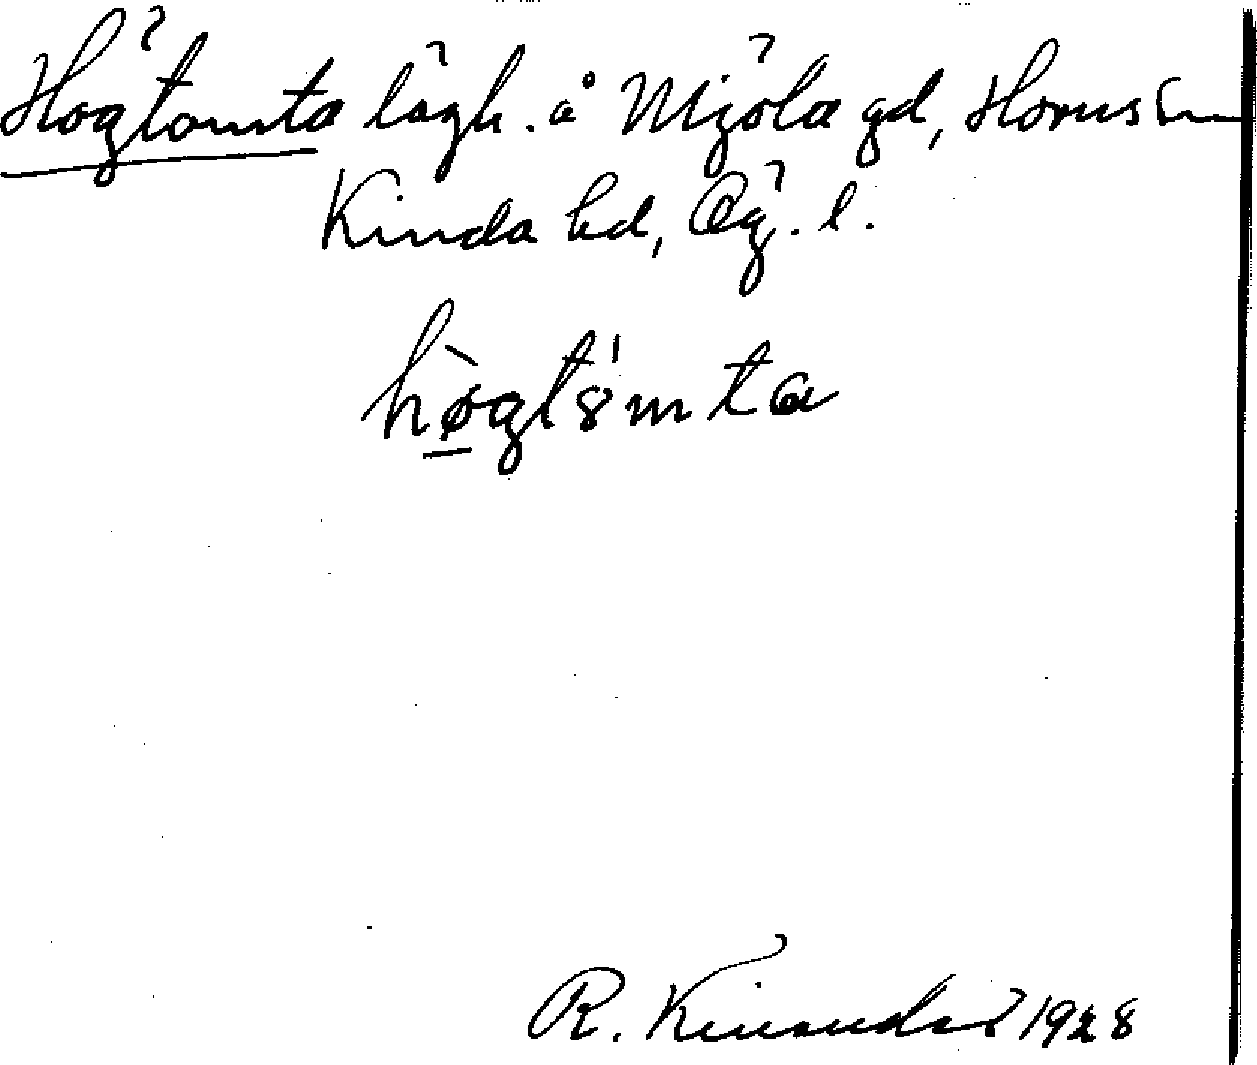 Högtomta lägh. å Mjöla gd, Horns sn
Kinda hd, Ög. l.
hø̀gtȣ́mta
R. Kinander 1928